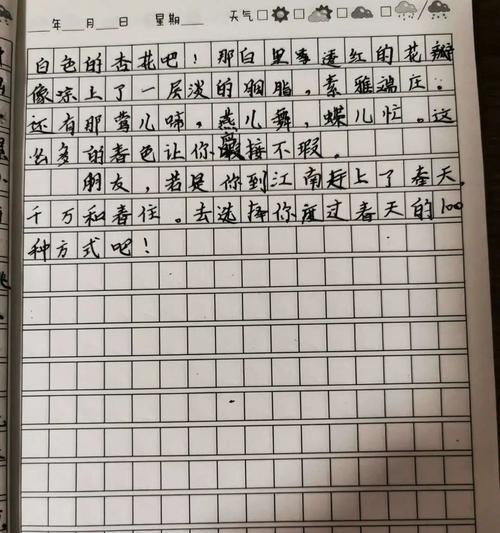 年 月 日 星期 天气
白色的杏花吧！那白里透红的花瓣
像涂上了一层淡的胭脂，素雅端庄。
还有那莺儿啼，燕儿舞，蝶儿忙。这
么多的春色让你接不瑕。
朋友，若是你到江南赶上了春天，
千万和春住。去选择你度过春天的100
种方式吧！